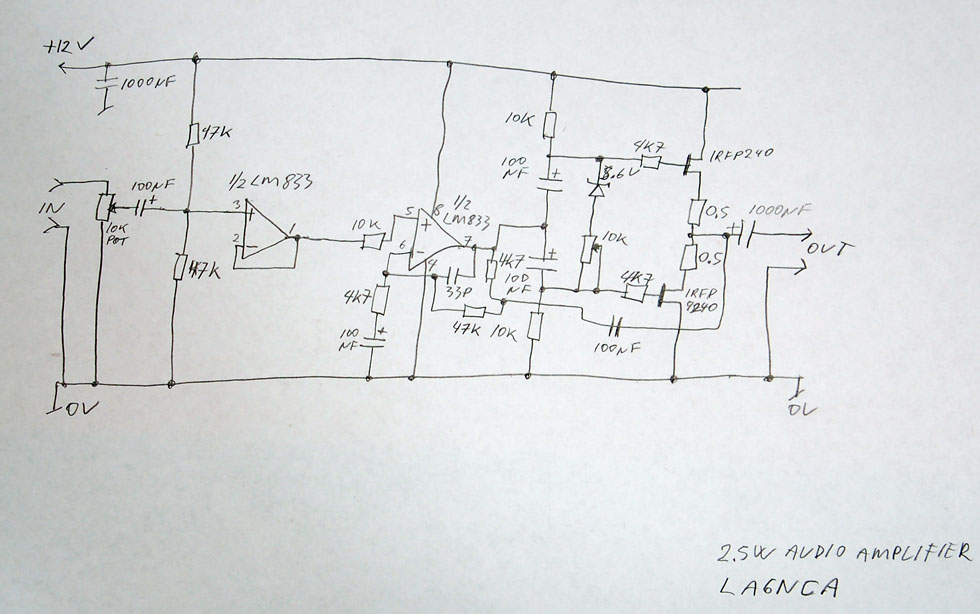 +12V
1000NF
47K
10K
100NF
4K7
IRFP240
1/2 LM833
3
2
1
5
6
8
4
7
1/2
LM833
100
NF
+
.6V
0,5
1000NF
+
IN
10K
POT
100NF
+
10K
10K
OUT
33P
4K7
100
NF
+
4K7
0.5
IRFP
9240
47K
4K7
100
NF
+
47K
10K
100NF
0V
0V
2.5W AUDIO AMPLIFIER
LA6NCA